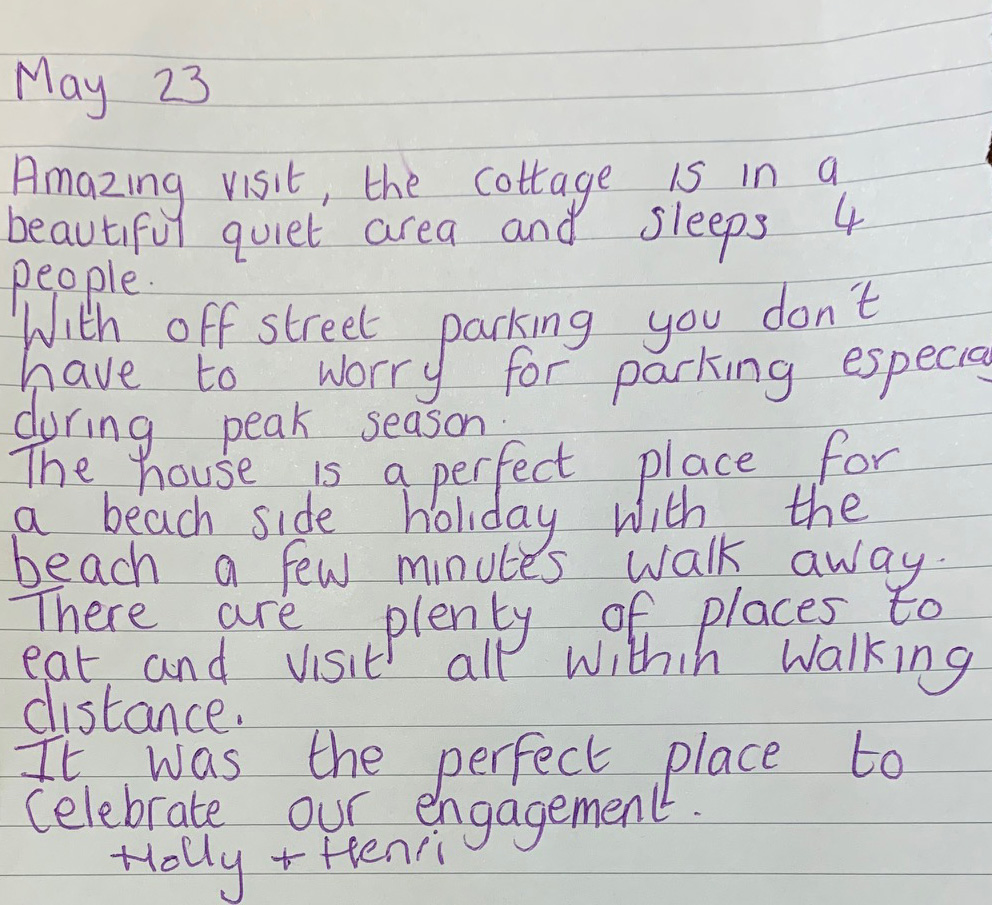 May 23
Amazing visit, the cottage is in a
beautiful quiet area and sleeps 4
people.
With off street parking you don't
have to worry for parking especia
during peak season.
The house is a perfect place for
a beach side holiday with the
beach a few minutes walk away.
There are plenty of places to
eat and visit all within walking
distance.
It was the perfect place to
celebrate our engagement.
Holly + Henri